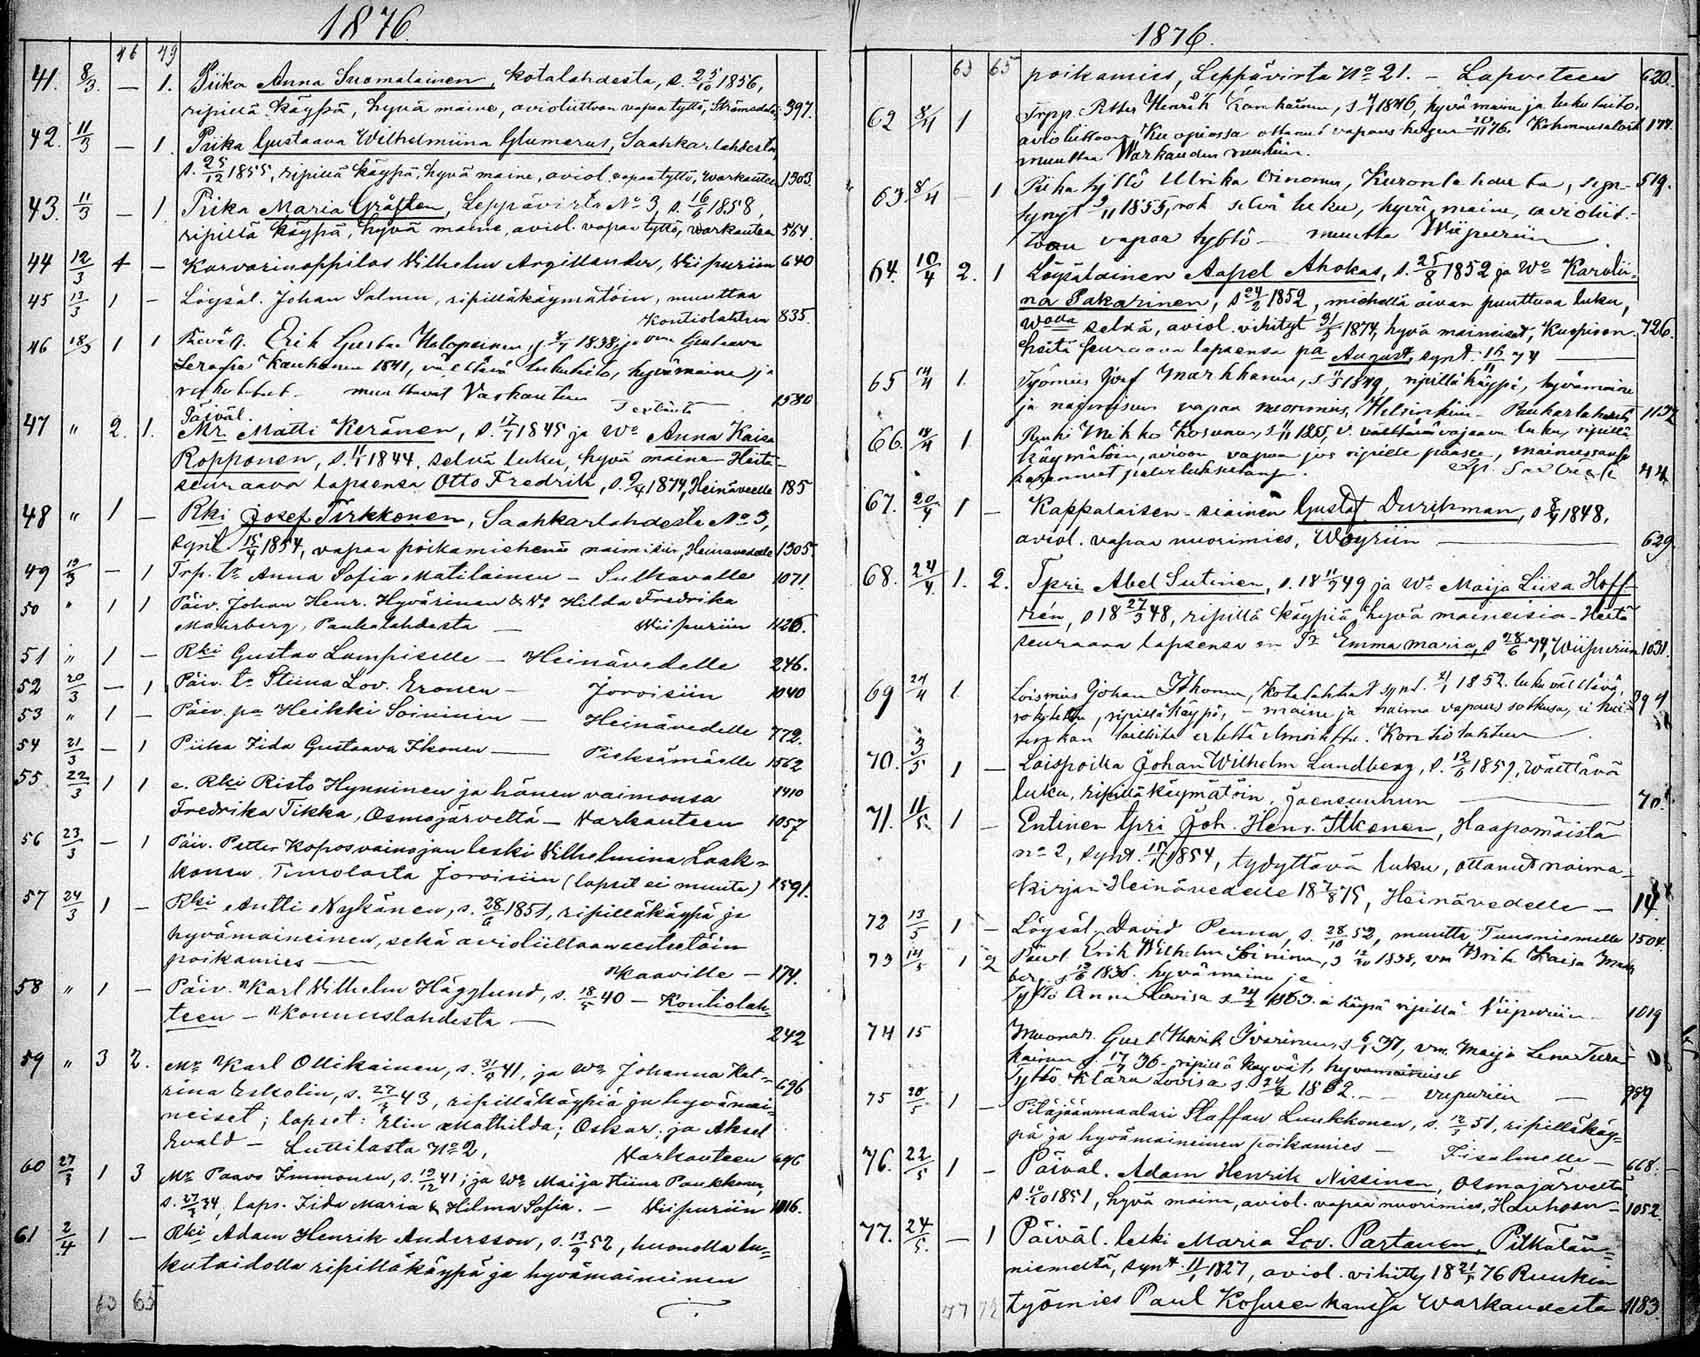 1876.
46 49
41. 8/3. — 1. Piika Anna Suomalainen, Kotalahdesta, s. 25/10 1856,
ripillä käypä, hyvä maine, avioliittoon vapaa tyttö, 397.
42. 11/3 — 1. Piika Gustaava Wilhelmiina Glumerus, Saahkarlahdesta,
s. 25/12 1855, ripillä käypä, hyvä maine, aviol. vapaa tyttö, Warkauteen 1303.
43. 11/3 — 1. Piika Maria Gråsten, Leppävirta No 3 s. 16/6 1858,
ripillä käypä, hyvä maine, aviol. vapaa tyttö, Warkauteen 564.
44 12/3 + — Karvarinoppilas Vilhelm Argillander, Viipuriin 640
45 13/3 1 — Löysäl. Johan Salmen, ripilläkäymätöin, muuttaa
Kontiolahteen 835.
46 18/3 1 1 Erik Gustav 1838, ja Gustaava
Serafia Kauhanen 1841, välttävä lukutaito, hyvämaine ja
muuttavat Varkauteen 1580
47 " 2. 1. Päiväl. Mr Matti Keränen, s. 17/7 1845 ja Wo Anna Kaisa
Ropponen, s. 11/1 1844, selvä luku, hyvä maine - Heitä
seuraava lapsensa Otto Fredrik, s. 9/4 1874, Heinäveelle 185
48 " 1 — Rki Josef Tirkkonen, Saahkarlahdesta No 3,
synt 15/4 1854, vapaa poikamiehenä naimisiin, Heinävedelle 1305.
49 19/3 — 1 Trp. tr Anna Sofia Matilainen — Sulkavalle 1071
50 " 1 1 Päiv. Johan Henr. Hyvärinen & Vo Hilda Fredrika
Maurberg, Paukalahdesta — Wiipuriin 1126.
51 " 1 — Rki Gustav Lampiselle — Heinävedelle 246.
52 20/3 — 1 Päiv. tr Stiina Lov. Eronen — Joroisiin 1040
53 " 1 — Päiv. pa Heikki Soininen — Heinävedelle 772.
54 21/3 — 1 Piika Iida Gustaava Ikonen — Pieksämäelle 1562
55 22/3 1 1 e. Rki Risto Hynninen ja hänen vaimonsa 1410
Fredrika Tikka, Osmajärveltä — Varkauteen 1057
56 23/3 — 1 Päiv. Petter Koposvainajan leski Vilhelmina Laak-
konen Timolasta Joroisiin (lapset ei muuta) 1591.
57 24/3 1 — Rki Antti Nykänen, s. 28/6 1851, ripilläkäypä ja
hyvämaineinen, sekä avioliittoon esteetöin
poikamies — Kaaville — 174.
58 " 1 — Päiv. Karl Vilhelm Hägglund, s. 18/5 40 — Kontiolah-
teen — Konnuslahdesta — 242
59 " 3 2. Mr Karl Ollikainen, s. 31/9 41, ja Wo Johanna Kat- 696
rina Eskolin, s. 27/3 43, ripilläkäypiä ja hyvämai-
neiset; lapset: Elin Mathilda; Oskar; ja Aksel
Evald — Luttilasta No 2, Varkauteen 696
60 27/3 1 3 Mr Paavo Immonen, s. 19/12 41; ja Wo Maija Stiina Paukkonen,
s. 27/3 34, laps. Iida Maria & Hilma Sofia. — Viipuriin 1016.
61 2/4 1 — Rki Adam Henrik Andersson, s. 13/9 52, huonolla lu-
kutaidolla ripilläkäypä ja hyvämaineinen
63 65
1876.
63 65 poikamies, Leppävirta No 21. — Lapveteen 620.
62 8/4 1 Petter Henrik s. 1846, hyvä maine ja lukutaito.
avioliittoon Kuopiossa ottanut 177.
muuttaa Warkauden ruukiin.
63 8/4 — 1 Piika tyttö Ulrika Oinonen, Kuronlahdesta, 519.
synyt 1855, selvä luku, hyvä maine, avioliit-
toon vapaa tyttö — muutta Wiipuriin
64. 10/4 2. 1 Löysäläinen Aapel Ahokas, s. 25/8 1852 ja Wo Karolii-
na Pakarinen, s. 24/2 1852, miehellä aivan puuttuva luku,
Wolla selvä, aviol. vihityt 1874, hyvä maineiset, Kuopioon 726.
heitä seuraava lapsensa pa August, synt. 16/11 74
65 14/4 1. Työmies Markkanen, 1849, ripillä käypä, hyvämaine
ja naimiseen vapaa nuorimies, Helsinkiin 1137
66. 18/4 1. Renki Mikko Kosunen, välttävä vajaava luku, ripillä
käymätöin, avioon vapaa jos ripille pääsee, 44
67. 20/4 1 — Kappalaisen-siainen Gustaf Durchman, s 8/9 1848,
aviol. vapaa nuorimies, Wöyriin — 629
68. 24/4 1. 2. Tpri Abel Sutinen, s. 18 11/9 49 ja Wo Maija Liisa Hoff-
rén, s 18 27/3 48, ripillä käypiä, hyvä maineisia — Heitä
seuraava lapsensa on Tr Emma Maria, s 28/6 74, Wiipuriin 1031.
69 27/4 1 Loismies Johan Ikonen, Kotalahdest synt. 21/1 1852. luku välttävä,
ripillä käypä, — maine ja naima vapaus Kontiolahteen.
70. 3/5 1 — Loispoika Johan Wilhelm Lundberg, s. 12/6 1859, Wälttävä
luku, ripillä käymätöin, Joensuuhun 70.
71. 11/5. 1 — Entinen tpri Joh. Henr. Ikonen, Haapamäistä
no 2, synt. 15/1 1854, tydyttävä luku, ottanut naima-
kirjan Heinävedelle 18 1/8 75, Heinävedelle — 14
72 13/5 1 — Löysäl. David Penna, s. 28/10 52, muutta Tuusniemelle 1504.
73 14/5 1 2 Päivl Erik Wilhelm Soininen, s 1838, vm Brita Kaisa
1836. hyvä maine ja
Tyttö Anna Lovisa s 24/2 1863. ä käypä ripillä Viipuriin — 1019
74 15 Muonar. Gust Henrik Ivarinen s 6/1 37, vm. Maija Lena
s. 17/7 36. ripillä käyvät, hyvämaineiset
Tyttö Klara Lovisa s. 24/2 1862. — Viipuriin — 989
75 20/5 1 — Pitäjäänmaalari Staffan Luukkonen, s. 12/5 51, ripilläkäy-
pä ja hyvämaineinen poikamies — Iisalmelle — 668.
76. 22/5 1 — Päiväl. Adam Henrik Nissinen, Osmajärveltä
s. 10/10 1851, hyvä maine, aviol. vapaa nuorimies, 1052.
77. 24/5. — 1 Päiväl. leski Maria Lov. Partanen, Pitkälän-
niemeltä, synt. 11/1 1827, aviol. vihitty 18 21/5 76 Ruukin
työmies Paul Kosusen kanssa Warkaudesta 1183.
77 72